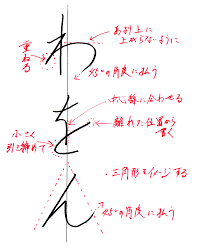 わ
を
ん
重ねる
あまり上に
上がらないように
45°の角度に払う
中心線に合わせる
離れた位置から
書く
小さく
引き締めて
・三角形をイメージする
45°の角度に払う